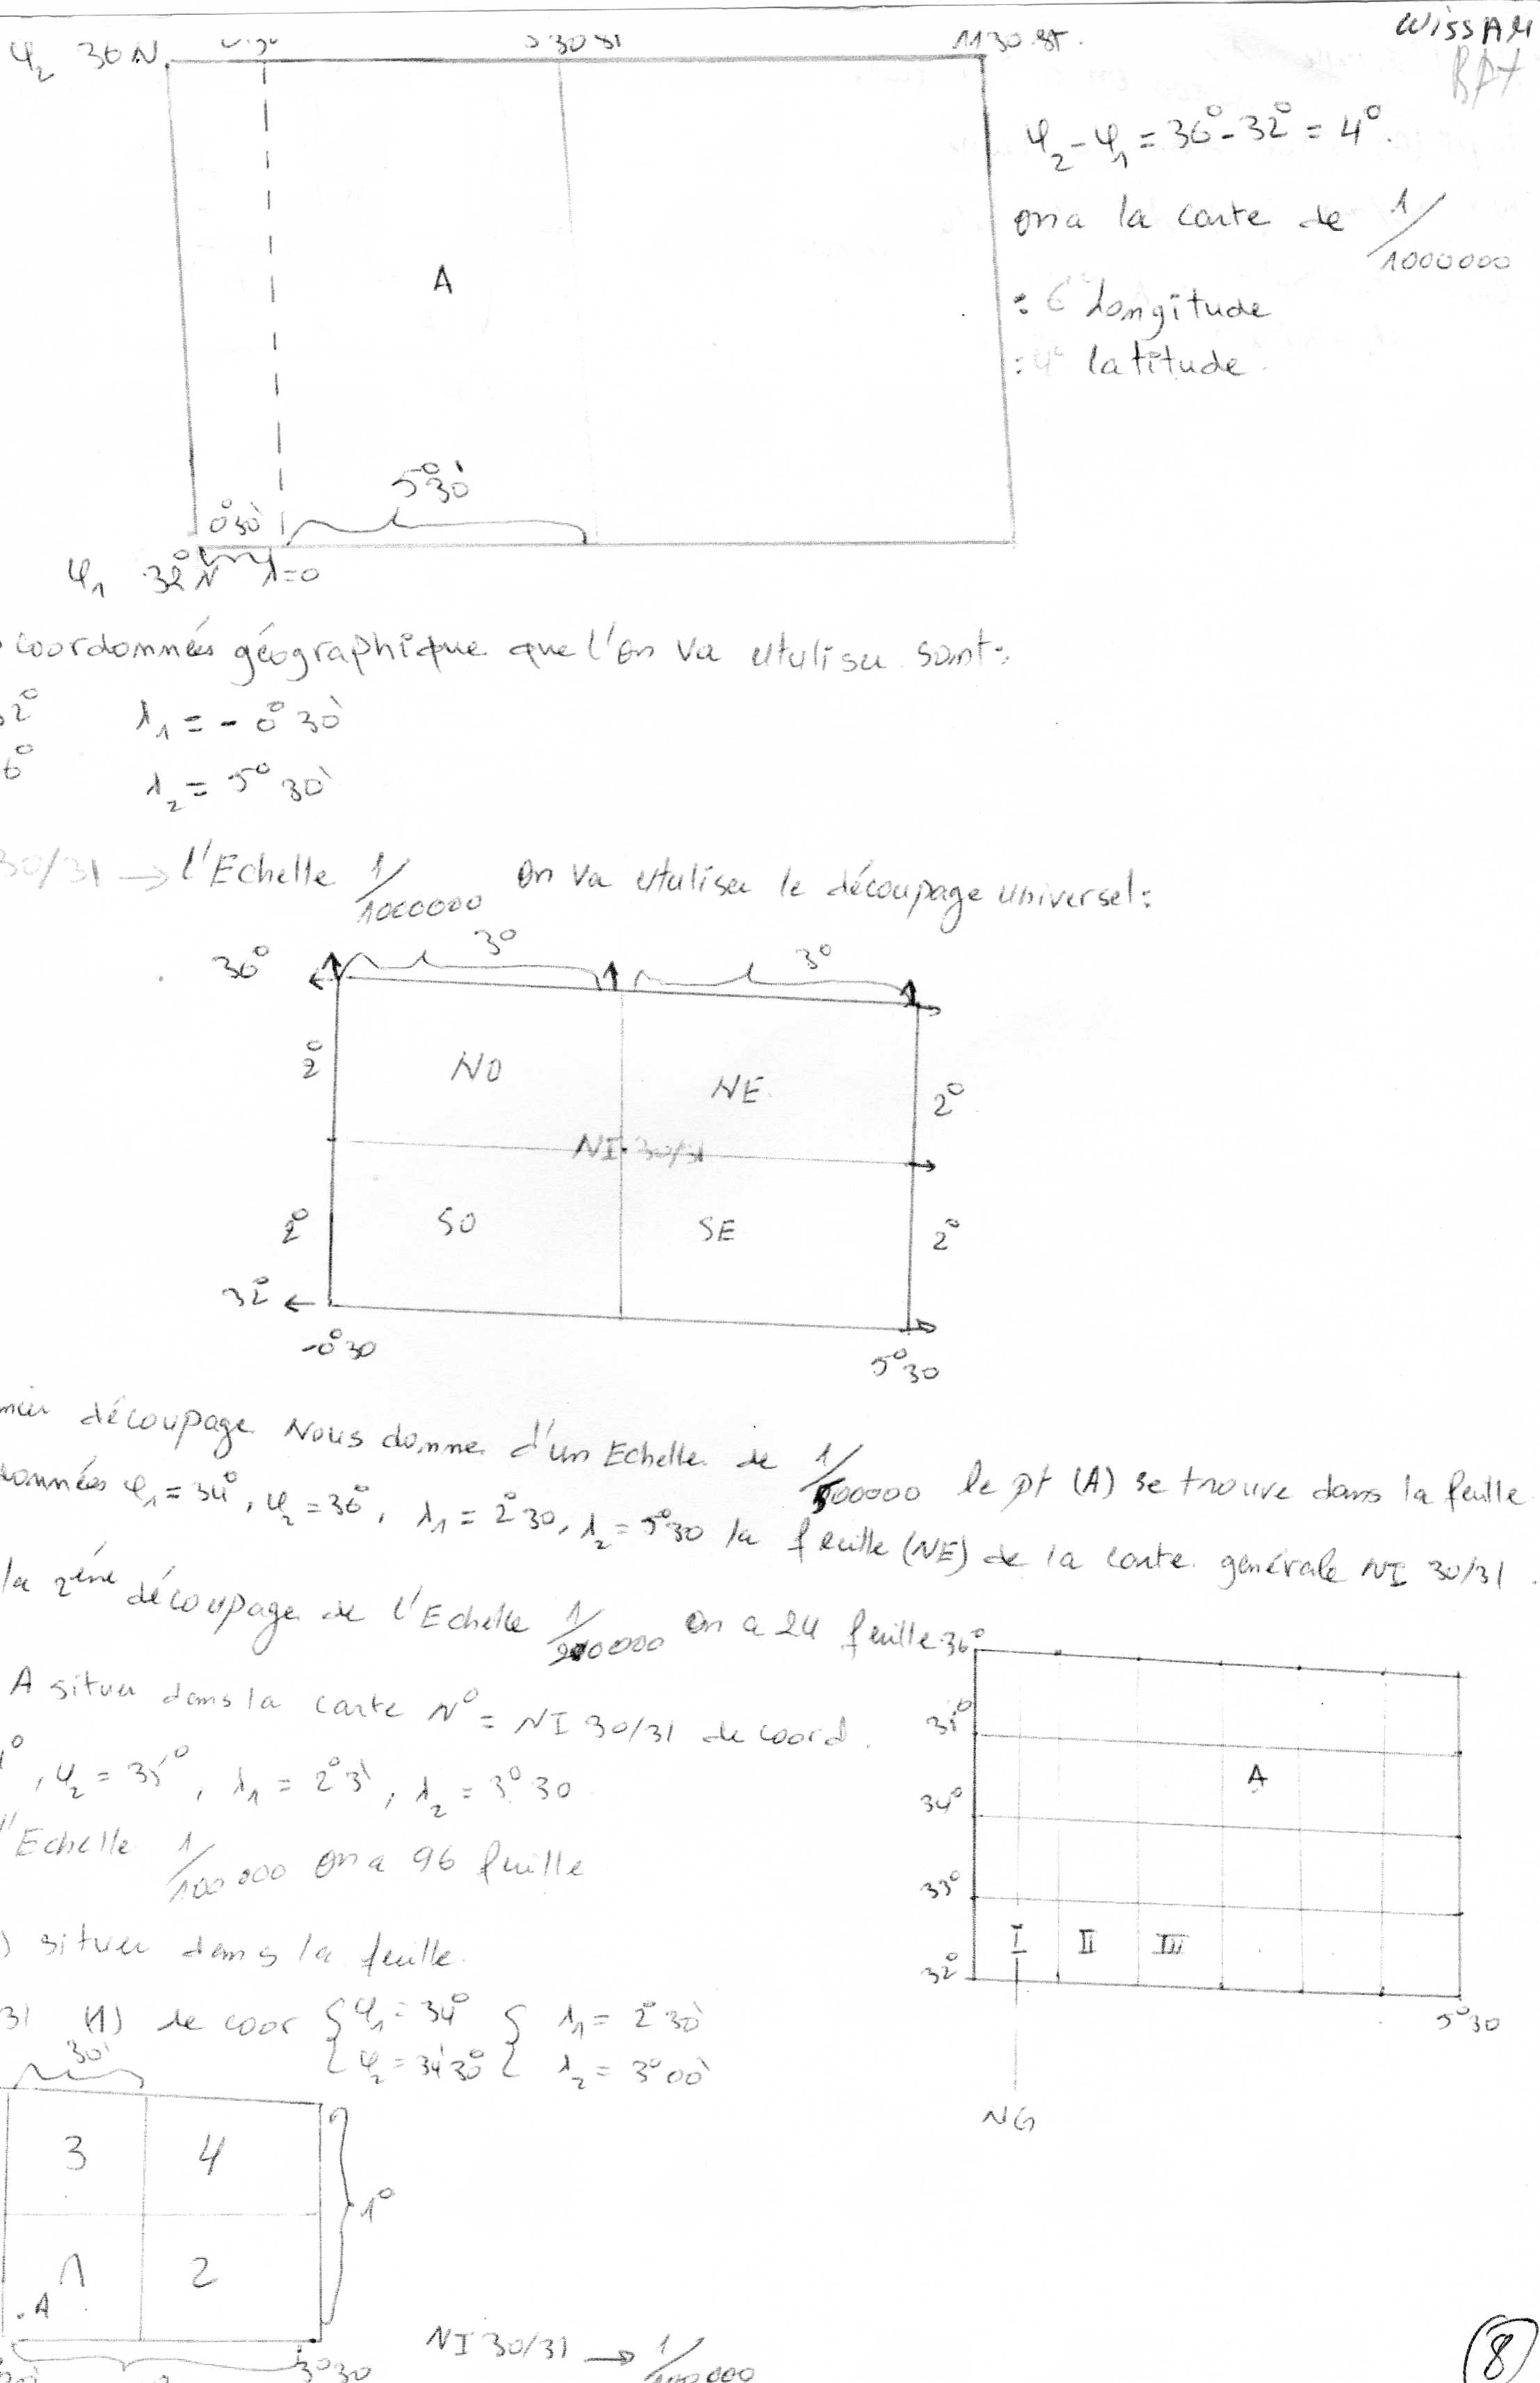 WissAM
BPT
φ₂ 36 N. 5 30 81 11 30
φ₂ - φ₁ = 36° - 32° = 4°.
on a la carte de 1/1000000
A
: 6° Longitude
: 4° latitude.
5°30'
0°30'
φ₁ 32° N λ=0
coordonnées géographique que l'on va utuliser sont:
2° λ₁ = - 0°30'
6° λ₂ = 5°30'
30/31 → l'Echelle 1/1000000 on va utuliser le découpage universel:
36° 3° 3°
2° NO NE 2°
NI. 30/31
2° SO SE 2°
32°
-0°30 5°30
découpage Nous donne d'un Echelle de 1/500000 le pt (A) se trouve dans la feuille
données φ₁ = 34°, φ₂ = 36°, λ₁ = 2°30, λ₂ = 5°30 la feuille (NE) de la carte générale NI 30/31.
la 2éme découpage de l'Echelle 1/200000 on a 24 feuille 36°
A situer dans la carte N° = NI 30/31 de coord.
35°
°, φ₂ = 35°, λ₁ = 2°3', λ₂ = 3°30
A
34°
l'Echelle 1/100000 on a 96 feuille
33°
) situer dans la feuille.
I II III
32°
31 (1) de coor { φ₁ = 34° { λ₁ = 2°30'
5°30
φ₂ = 34°30' λ₂ = 3°00'
30'
NG
3 4
1°
1 2
.A
3°30
NI 30/31 → 1/100000
8